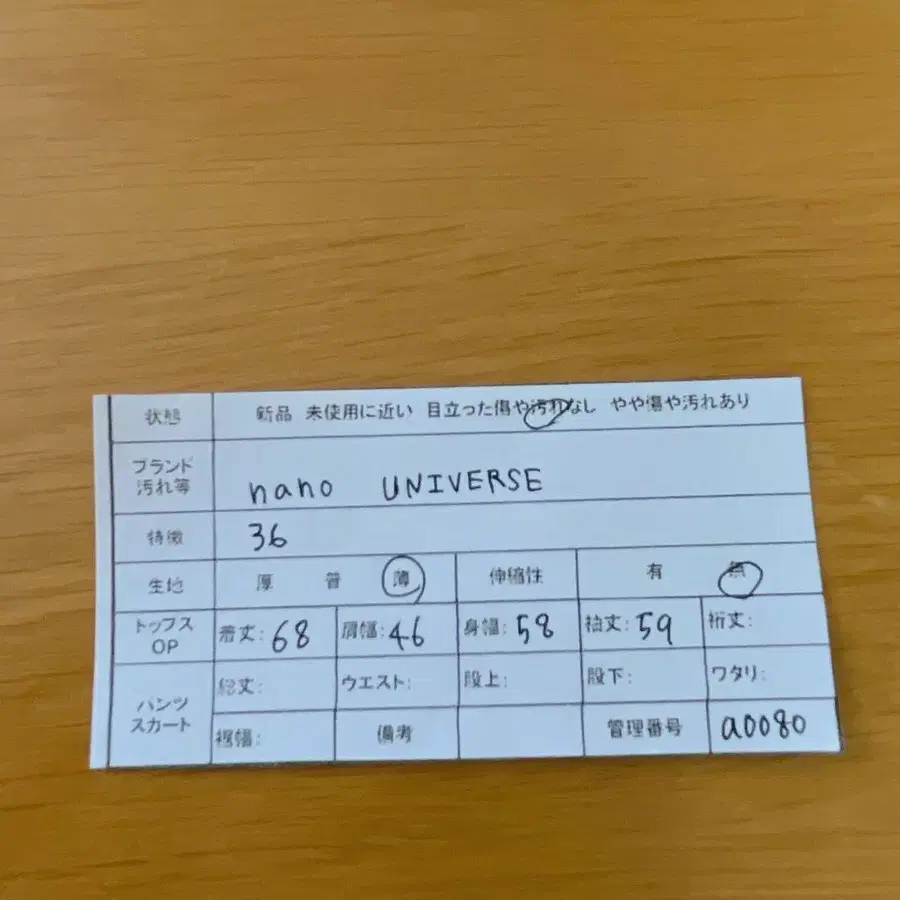 状態 新品 未使用に近い 目立った傷や汚れなし やや傷や汚れあり
ブランド
汚れ等 nano UNIVERSE
特徴 36
生地 厚 普 薄 伸縮性 有 無
トップス
OP 着丈: 68 肩幅: 46 身幅: 58 袖丈: 59 裄丈:
パンツ
スカート 総丈: ウエスト: 股上: 股下: ワタリ:
裾幅: 備考 管理番号 a0080